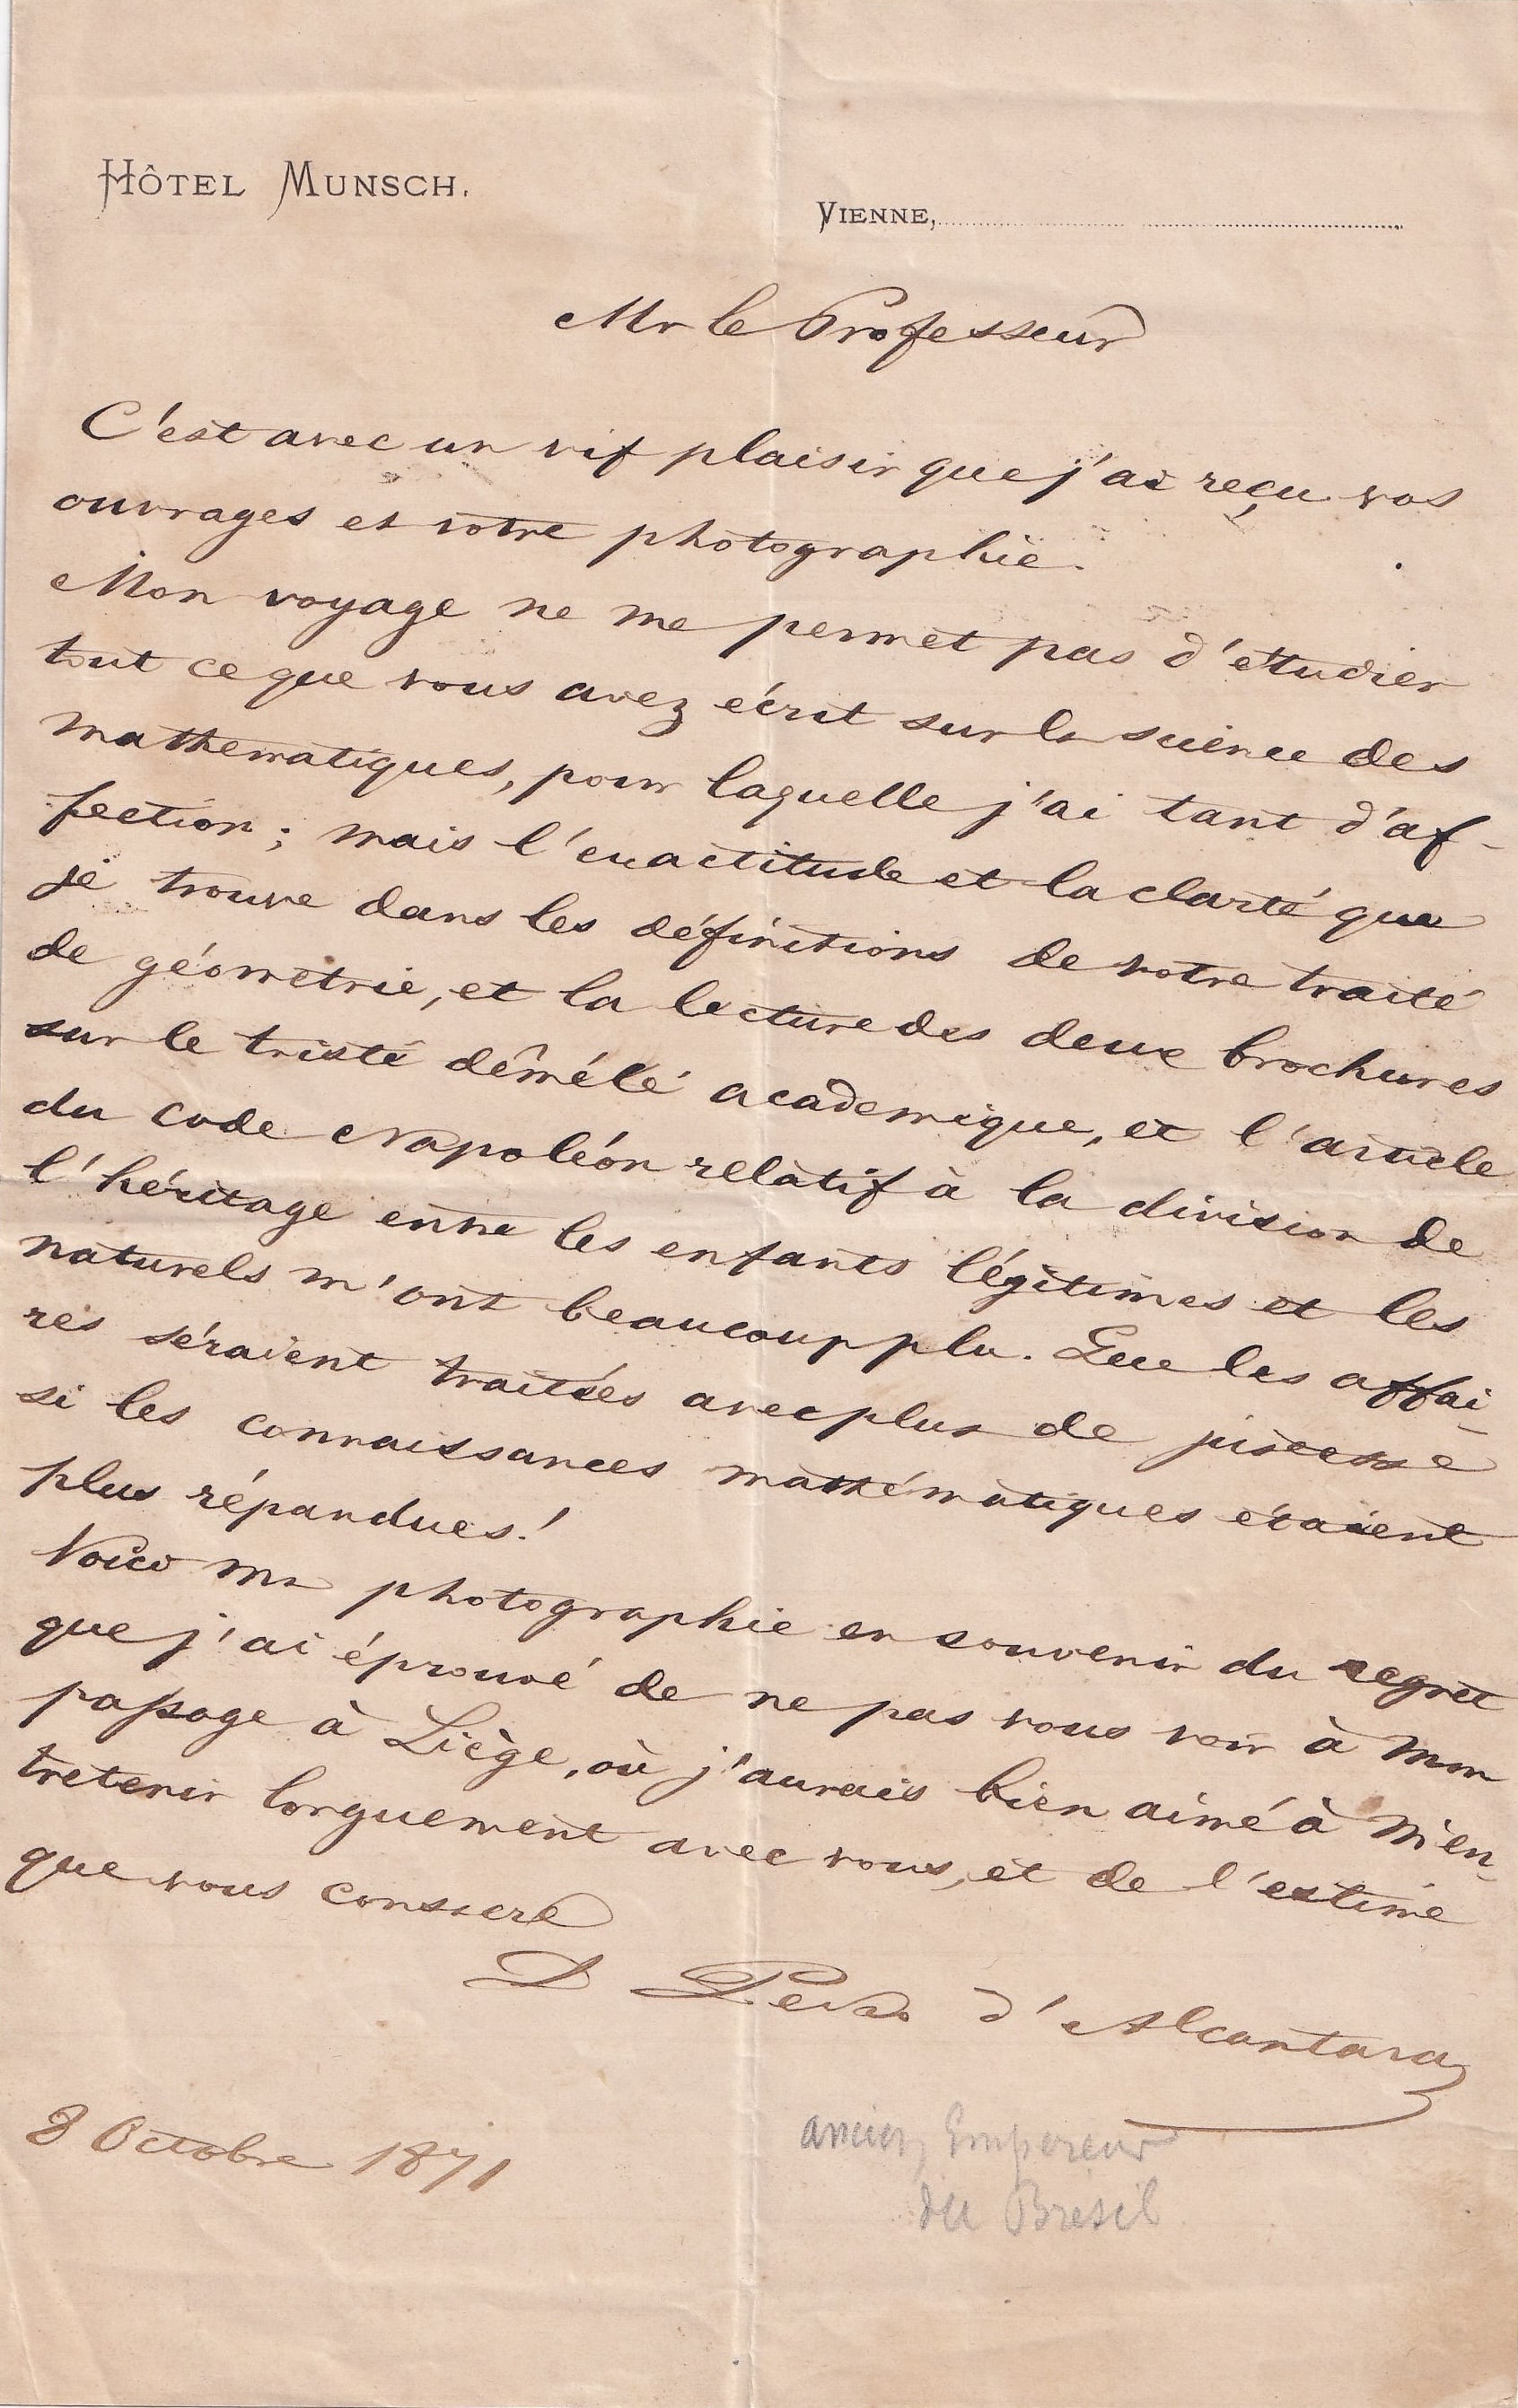 HÔTEL MUNSCH.
VIENNE,
Mr le Professeur
C'est avec un vif plaisir que j'ai reçu vos
ouvrages et votre photographie.
Mon voyage ne me permet pas d'étudier
tout ce que vous avez écrit sur la science des
mathematiques, pour laquelle j'ai tant d'af-
fection; mais l'exactitude et la clarté que
je trouve dans les définitions de votre traité
de géometrie, et la lecture des deux brochures
sur le triste démêlé academique, et l'article
du code Napoléon relatif à la division de
l'héritage entre les enfants légitimes et les
naturels m'ont beaucoup plu. Que les affai-
res séraient traitées avec plus de justesse
si les connaissances mathématiques étaient
plus répandues!
Voici ma photographie en souvenir du regret
que j'ai éprouvé de ne pas vous voir à mon
passage à Liège, où j'aurais bien aimé à m'en-
tretenir longuement avec vous, et de l'estime
que vous consacre
D Pedro d'Alcantara
8 Octobre 1871
ancien Empereur
du Bresil